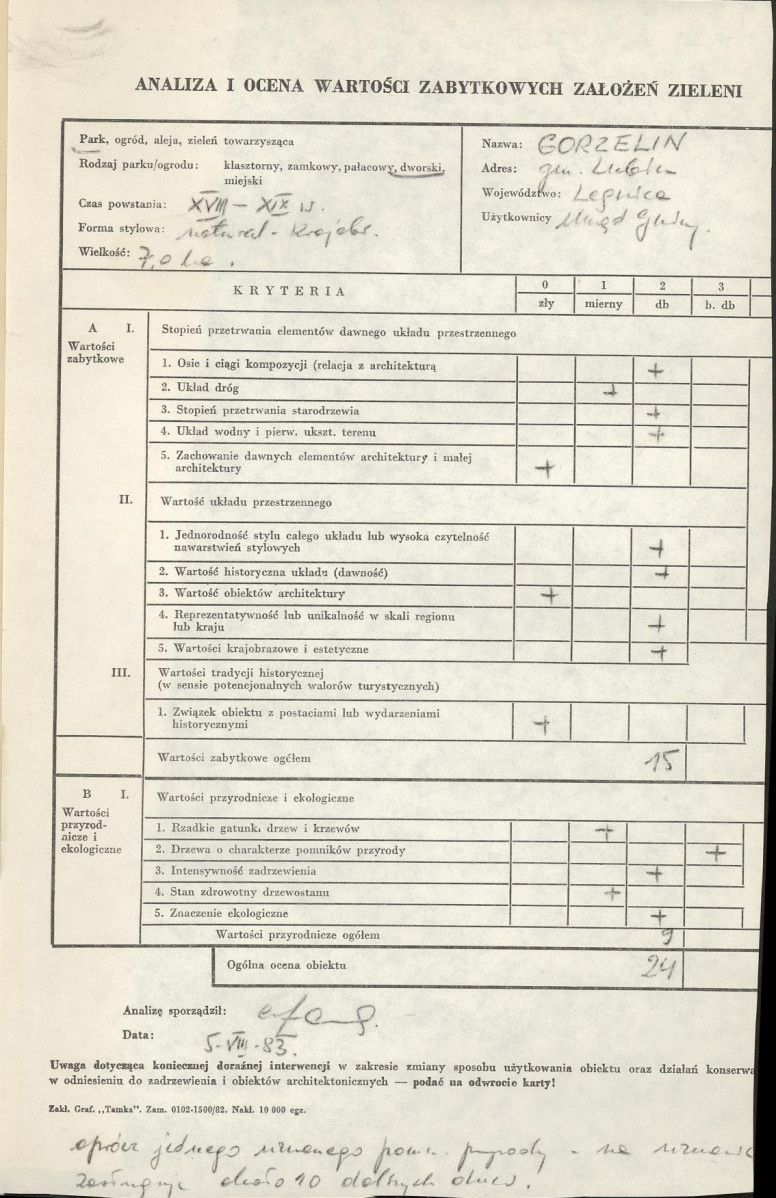 ANALIZA I OCENA WARTOŚCI ZABYTKOWYCH ZAŁOŻEŃ ZIELENI
Park, ogród, aleja, zieleń towarzysząca
Rodzaj parku/ogrodu: klasztorny, zamkowy, pałacowy, dworski,
miejski
Czas powstania: XVIII – XIX w.
Forma stylowa: natural - krajobr.
Wielkość: 7,0 ha.
Nazwa: GORZELIN
Adres: gm. Lubin
Województwo: Legnica
Użytkownicy Urząd Gminy.
KRYTERIA
0 1 2 3
zły mierny db b. db
A I. Stopień przetrwania elementów dawnego układu przestrzennego
Wartości
zabytkowe
1. Osie i ciągi kompozycji (relacja z architekturą +
2. Układ dróg +
3. Stopień przetrwania starodrzewia +
4. Układ wodny i pierw. ukszt. terenu +
5. Zachowanie dawnych elementów architektury i małej
architektury +
II. Wartość układu przestrzennego
1. Jednorodność stylu całego układu lub wysoka czytelność
nawarstwień stylowych +
2. Wartość historyczna układu (dawność) +
3. Wartość obiektów architektury +
4. Reprezentatywność lub unikalność w skali regionu
lub kraju +
5. Wartości krajobrazowe i estetyczne +
III. Wartości tradycji historycznej
(w sensie potencjonalnych walorów turystycznych)
1. Związek obiektu z postaciami lub wydarzeniami
historycznymi +
Wartości zabytkowe ogółem 15
B I. Wartości przyrodnicze i ekologiczne
Wartości
przyrod-
nicze i
ekologiczne
1. Rzadkie gatunki drzew i krzewów +
2. Drzewa o charakterze pomników przyrody +
3. Intensywność zadrzewienia +
4. Stan zdrowotny drzewostanu +
5. Znaczenie ekologiczne +
Wartości przyrodnicze ogółem 9
Ogólna ocena obiektu 24
Analizę sporządził:
Data: 5-VIII-83.
Uwaga dotycząca koniecznej doraźnej interwencji w zakresie zmiany sposobu użytkowania obiektu oraz działań konserwa
w odniesieniu do zadrzewienia i obiektów architektonicznych — podać na odwrocie karty!
Zakł. Graf. „Tamka". Zam. 0102-1500/82. Nakł. 10 000 egz.
oprócz jednego uznanego pomn. przyrody - na uznanie
zasługuje około 10 dalszych drzew.